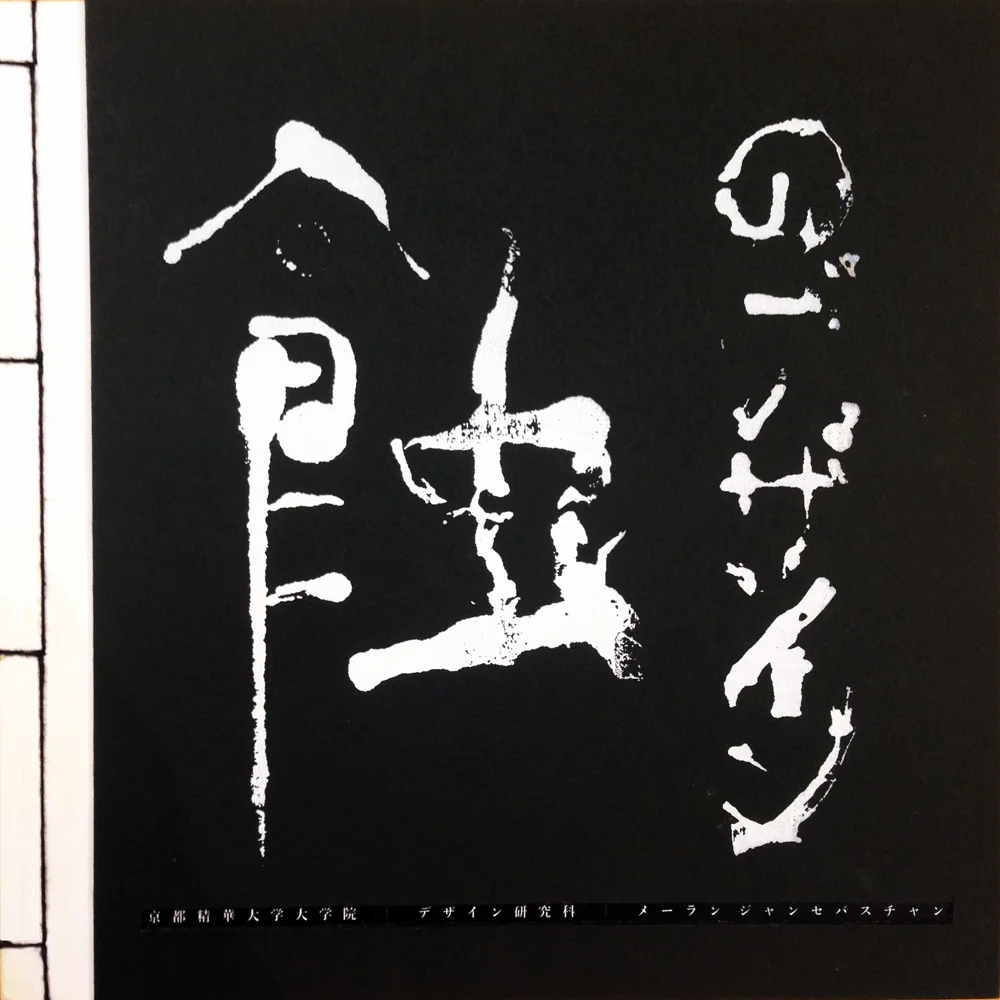 蝕
のデザイン
京都精華大学大学院 デザイン研究科 メーランジャンセバスチャン